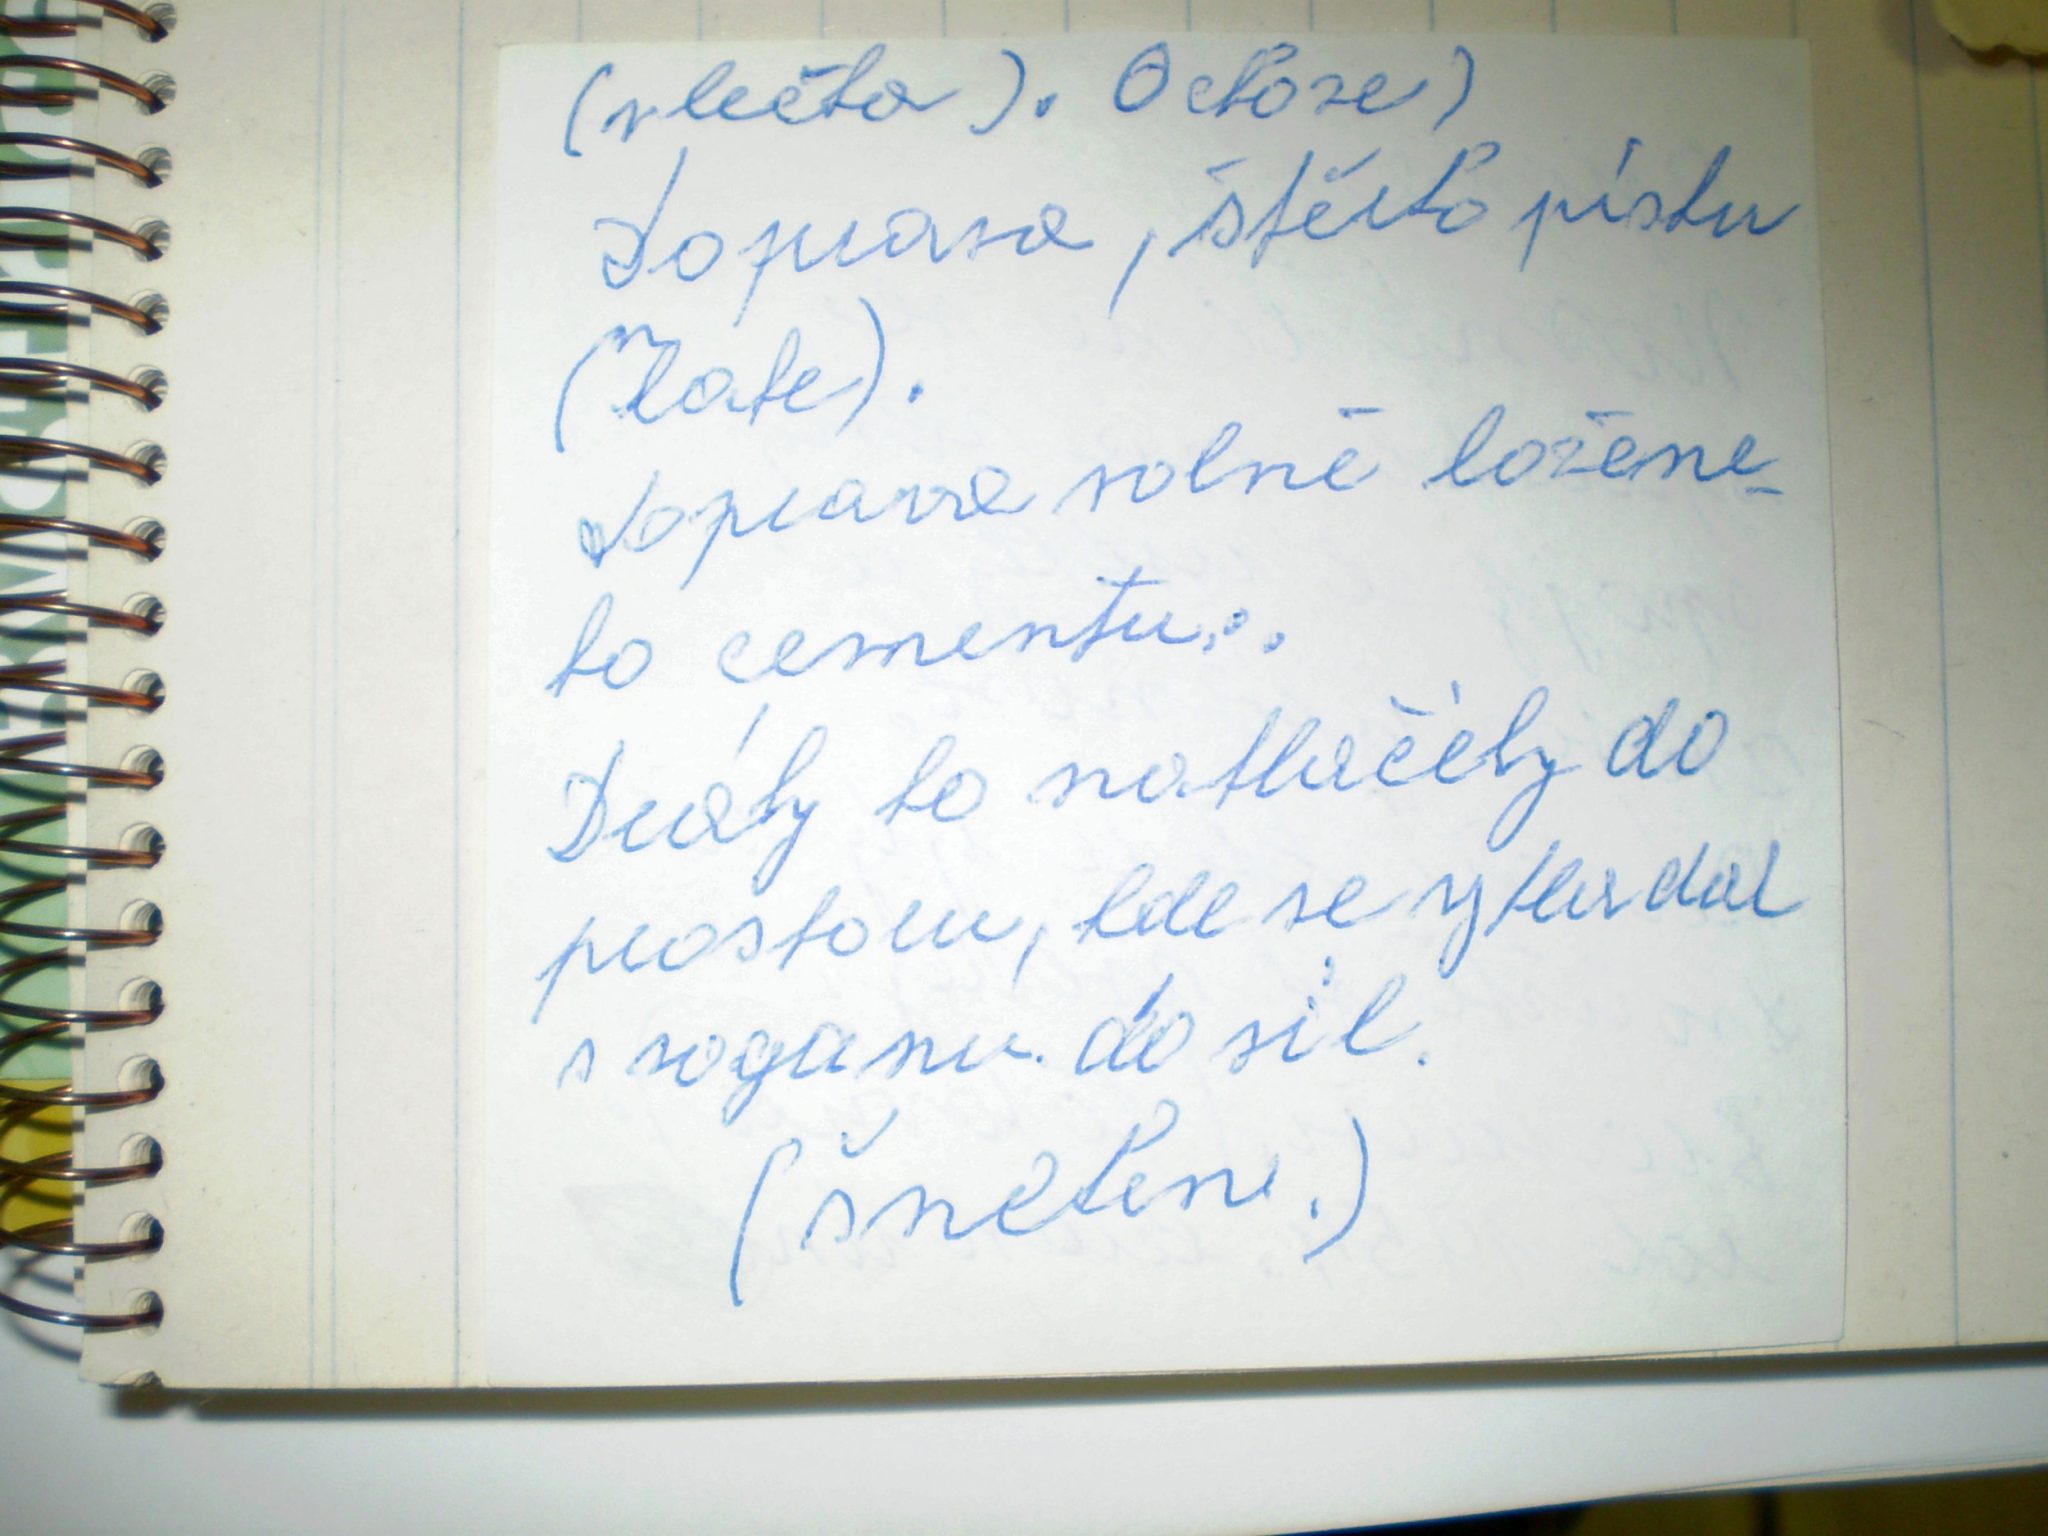 (vlečka). Ockoze)
Doprava, štěrko pístu
(Late).
Doprava volně ložene-
ho cementu...
Dráhy to natlačély do
prostoru, kde se vykládal
s voganu do sil.
(šnekem.)